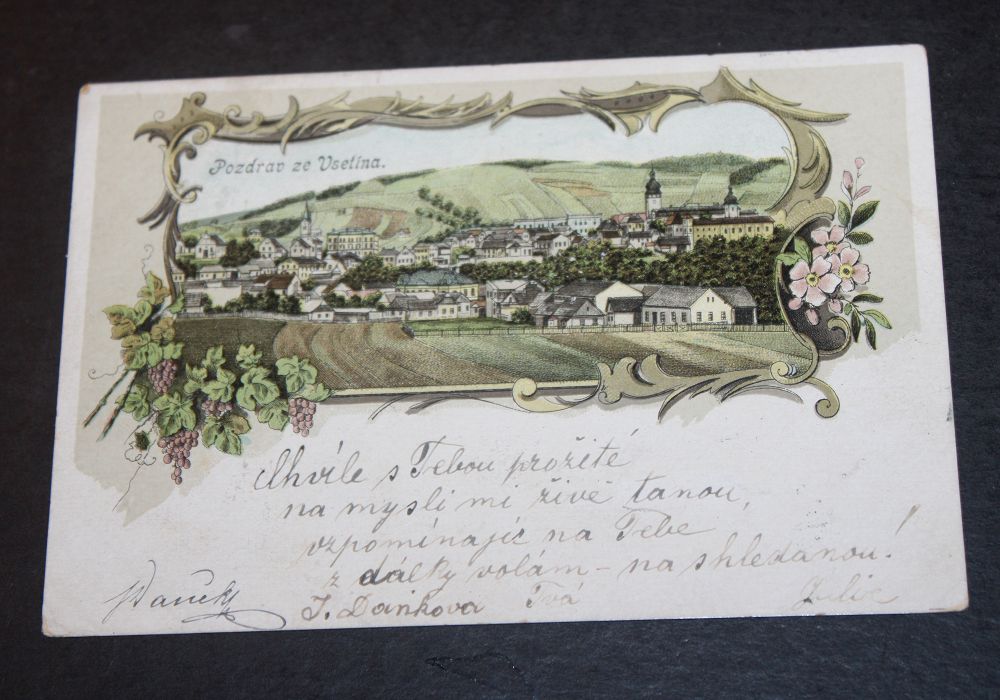 Pozdrav ze Vsetína.
Chvíle s Tebou prožité
na mysli mi živě tanou,
vzpomínajíc na Tebe
z dálky volám – na shledanou!
J. Daňkova Tvá Julie